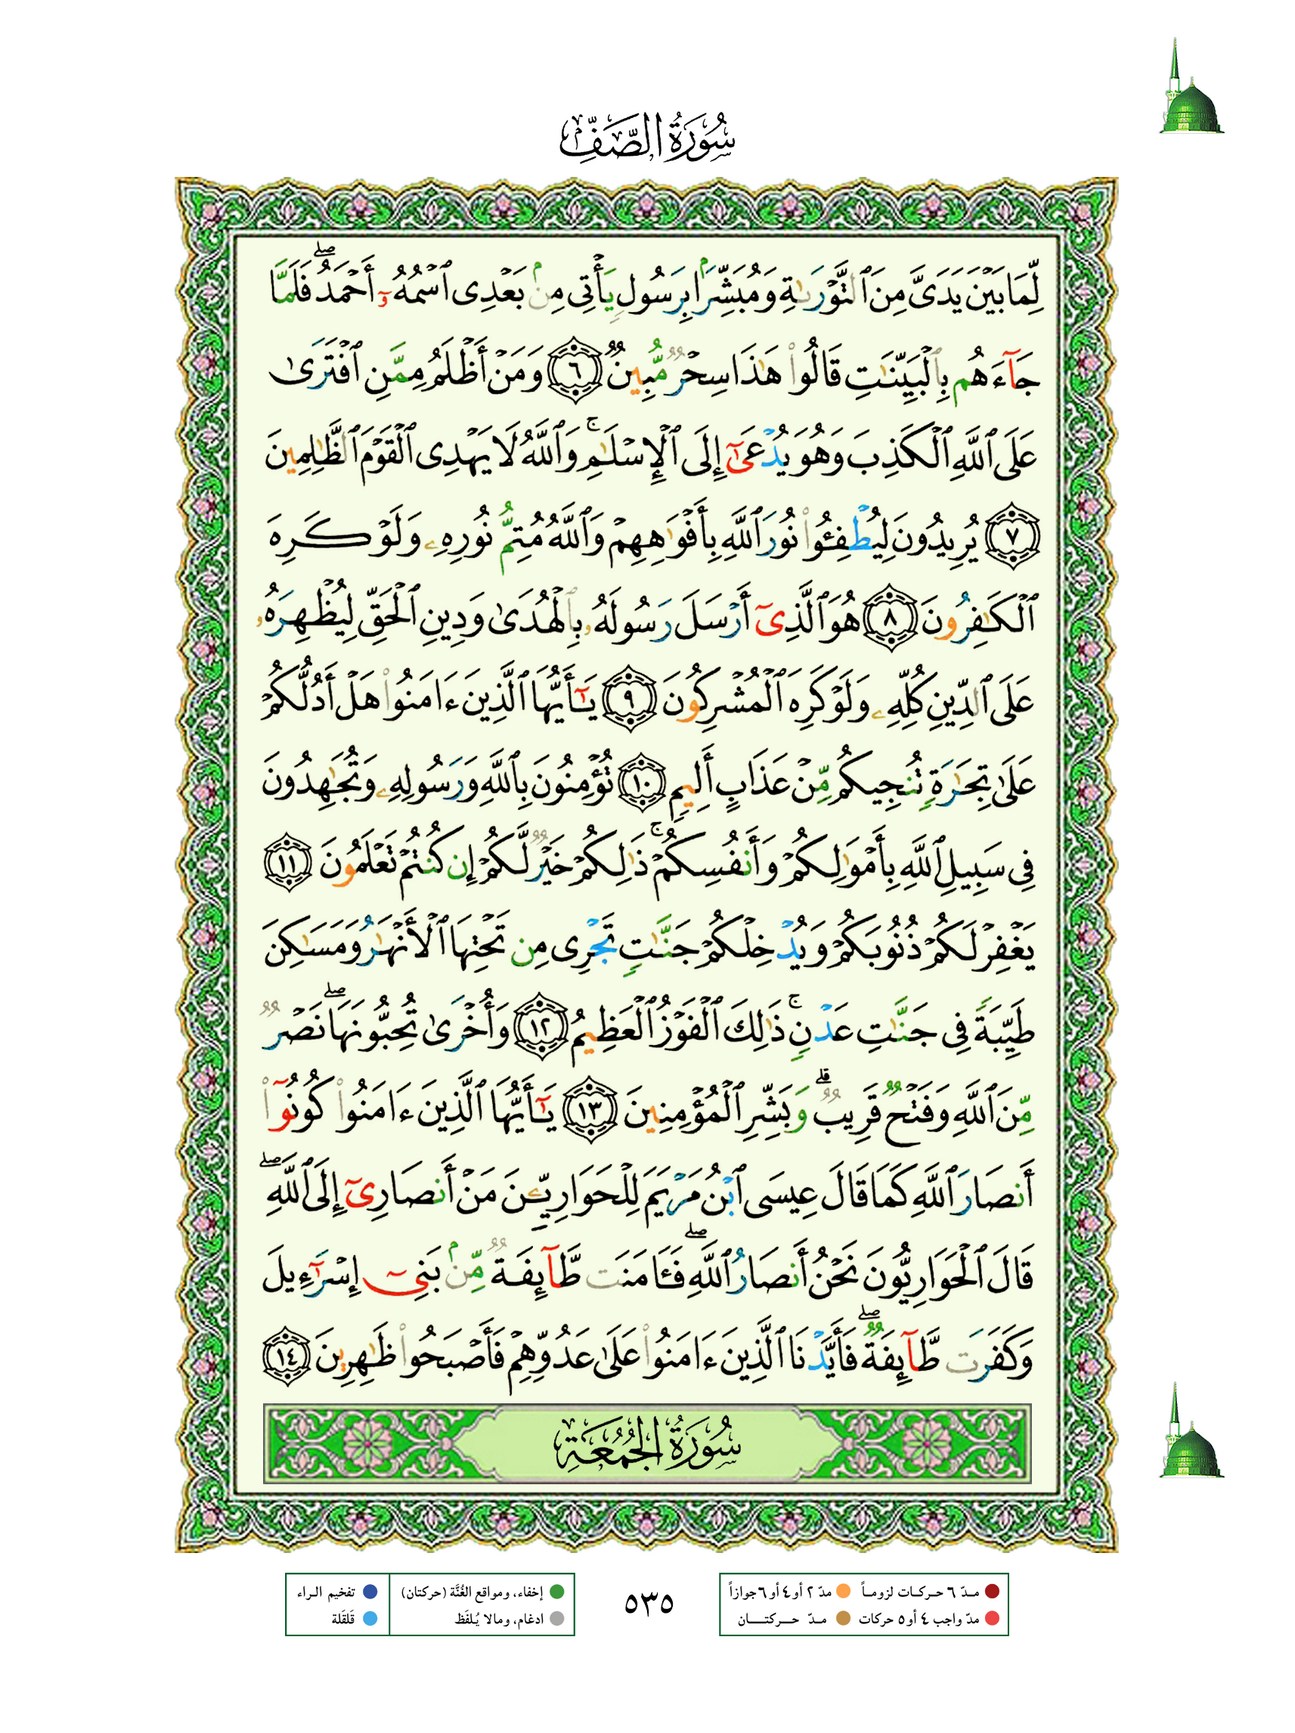 سُورَةُ الصَّفِّ
لِّمَا بَيْنَ يَدَيَّ مِنَ ٱلتَّوْرَىٰةِ وَمُبَشِّرًۢا بِرَسُولٍ يَأْتِى مِنۢ بَعْدِى ٱسْمُهُۥٓ أَحْمَدُ ۖ فَلَمَّا
جَآءَهُم بِٱلْبَيِّنَٰتِ قَالُوا۟ هَٰذَا سِحْرٌ مُّبِينٌ ٦ وَمَنْ أَظْلَمُ مِمَّنِ ٱفْتَرَىٰ
عَلَى ٱللَّهِ ٱلْكَذِبَ وَهُوَ يُدْعَىٰٓ إِلَى ٱلْإِسْلَٰمِ ۚ وَٱللَّهُ لَا يَهْدِى ٱلْقَوْمَ ٱلظَّٰلِمِينَ
٧ يُرِيدُونَ لِيُطْفِـُٔوا۟ نُورَ ٱللَّهِ بِأَفْوَٰهِهِمْ وَٱللَّهُ مُتِمُّ نُورِهِۦ وَلَوْ كَرِهَ
ٱلْكَٰفِرُونَ ٨ هُوَ ٱلَّذِىٓ أَرْسَلَ رَسُولَهُۥ بِٱلْهُدَىٰ وَدِينِ ٱلْحَقِّ لِيُظْهِرَهُۥ
عَلَى ٱلدِّينِ كُلِّهِۦ وَلَوْ كَرِهَ ٱلْمُشْرِكُونَ ٩ يَٰٓأَيُّهَا ٱلَّذِينَ ءَامَنُوا۟ هَلْ أَدُلُّكُمْ
عَلَىٰ تِجَٰرَةٍ تُنجِيكُم مِّنْ عَذَابٍ أَلِيمٍ ١٠ تُؤْمِنُونَ بِٱللَّهِ وَرَسُولِهِۦ وَتُجَٰهِدُونَ
فِى سَبِيلِ ٱللَّهِ بِأَمْوَٰلِكُمْ وَأَنفُسِكُمْ ۚ ذَٰلِكُمْ خَيْرٌ لَّكُمْ إِن كُنتُمْ تَعْلَمُونَ ١١
يَغْفِرْ لَكُمْ ذُنُوبَكُمْ وَيُدْخِلْكُمْ جَنَّٰتٍ تَجْرِى مِن تَحْتِهَا ٱلْأَنْهَٰرُ وَمَسَٰكِنَ
طَيِّبَةً فِى جَنَّٰتِ عَدْنٍ ۚ ذَٰلِكَ ٱلْفَوْزُ ٱلْعَظِيمُ ١٢ وَأُخْرَىٰ تُحِبُّونَهَا ۖ نَصْرٌ
مِّنَ ٱللَّهِ وَفَتْحٌ قَرِيبٌ ۗ وَبَشِّرِ ٱلْمُؤْمِنِينَ ١٣ يَٰٓأَيُّهَا ٱلَّذِينَ ءَامَنُوا۟ كُونُوٓا۟
أَنصَارَ ٱللَّهِ كَمَا قَالَ عِيسَى ٱبْنُ مَرْيَمَ لِلْحَوَارِيِّـۧنَ مَنْ أَنصَارِىٓ إِلَى ٱللَّهِ ۖ
قَالَ ٱلْحَوَارِيُّونَ نَحْنُ أَنصَارُ ٱللَّهِ ۖ فَـَٔامَنَت طَّآئِفَةٌ مِّنۢ بَنِىٓ إِسْرَٰٓءِيلَ
وَكَفَرَت طَّآئِفَةٌ ۖ فَأَيَّدْنَا ٱلَّذِينَ ءَامَنُوا۟ عَلَىٰ عَدُوِّهِمْ فَأَصْبَحُوا۟ ظَٰهِرِينَ ١٤
سُورَةُ الْجُمُعَةِ
مـدّ ٦ حركـات لزومـاً مدّ ٢ أو ٤ أو ٦ جوازاً
مدّ واجب ٤ أو ٥ حركات مـدّ حـــركتـــان
٥٣٥
إخفاء، ومواقع الغُنَّة (حركتان) تفخيم الراء
ادغام، ومالا يُلفَظ قلقلة